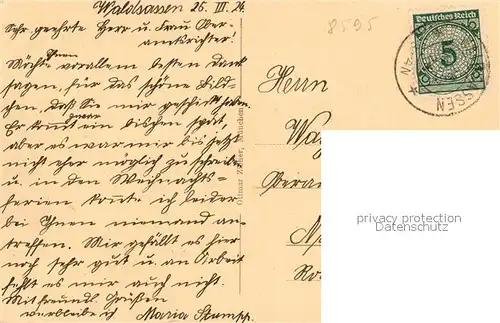 Waldsassen 26. III. 24.
Sehr geehrte Herr u. Frau Ober-
amtsrichter!
Möchte Ihnen vorallem besten Dank
sagen, für das schöne Bild-
chen, das Sie mir geschickt haben.
Er kommt zwar ein bischen spät,
aber es war mir bis jetzt
nicht eher möglich zu schreiben
u. in den Weihnachts-
ferien konte ich leider
bei Ihnen niemand an-
treffen. Mir gefällt es hier
noch sehr gut u. an Arbeit
fehlt es mir auch nicht.
Mit freundl. Grüßen
verbleibe ich Maria Stumpf.
Ottmar Zieher, München
8595
Deutsches Reich
5
SSEN
Herrn
Wa
Oberam
Ro
privacy protection
VERY IMPORTANT